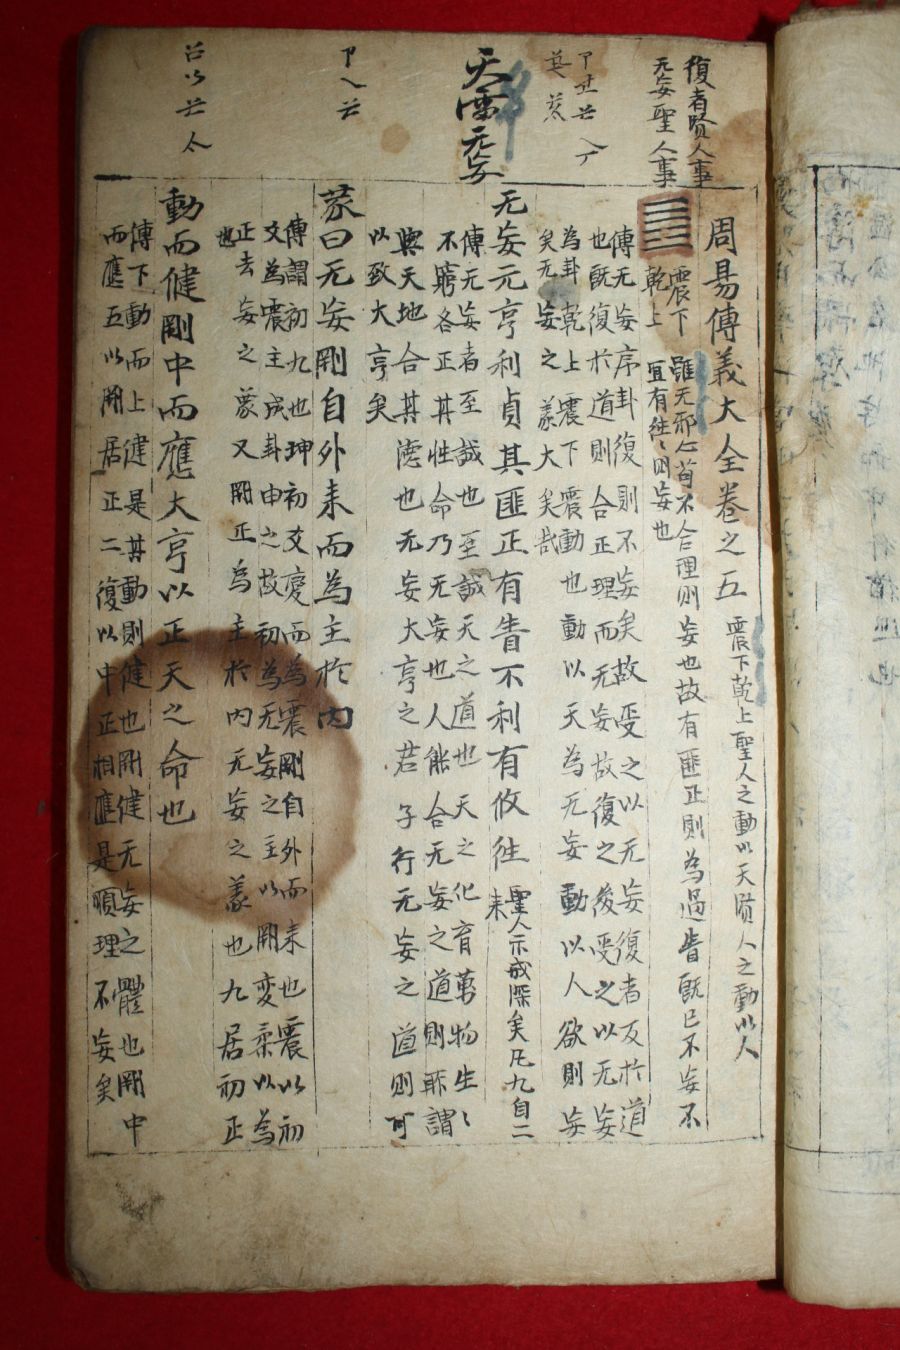 復者賢人事
无妄聖人事
天雷无妄
周易傳義大全卷之五
震下乾上聖人之動以天賢人之動以人
震下
乾上
雖无邪心苟不合理則妄也故有匪正則為過眚旣已不妄不
宜有往往則妄也
傳无妄序卦復則不妄矣故受之以无妄復者反於道
也旣復於道則合正理而无妄故復之後受之以无妄
為卦乾上震下震動也動以天為无妄動以人欲則妄
矣无妄之義大矣哉
无妄元亨利貞其匪正有眚不利有攸往
聖人示戒深矣凡九自二
来
傳无妄者至誠也至誠天之道也天之化育萬物生〻
不窮各正其性命乃无妄也人能合无妄之道則所謂
與天地合其德也无妄大亨之君子行无妄之道則可
以致大亨矣
彖曰无妄剛自外来而為主於内
傳謂初九也坤初爻変而為震剛自外而来也震以初
爻為震主成卦由之故初為无妄之主以剛変柔以為
正去妄之象又剛正為主於内无妄之義也九居初正
也
動而健剛中而應大亨以正天之命也
傳下動而上健是其動則健也剛健无妄之體也剛中
而應五以剛居正二復以中正相應是順理不妄矣